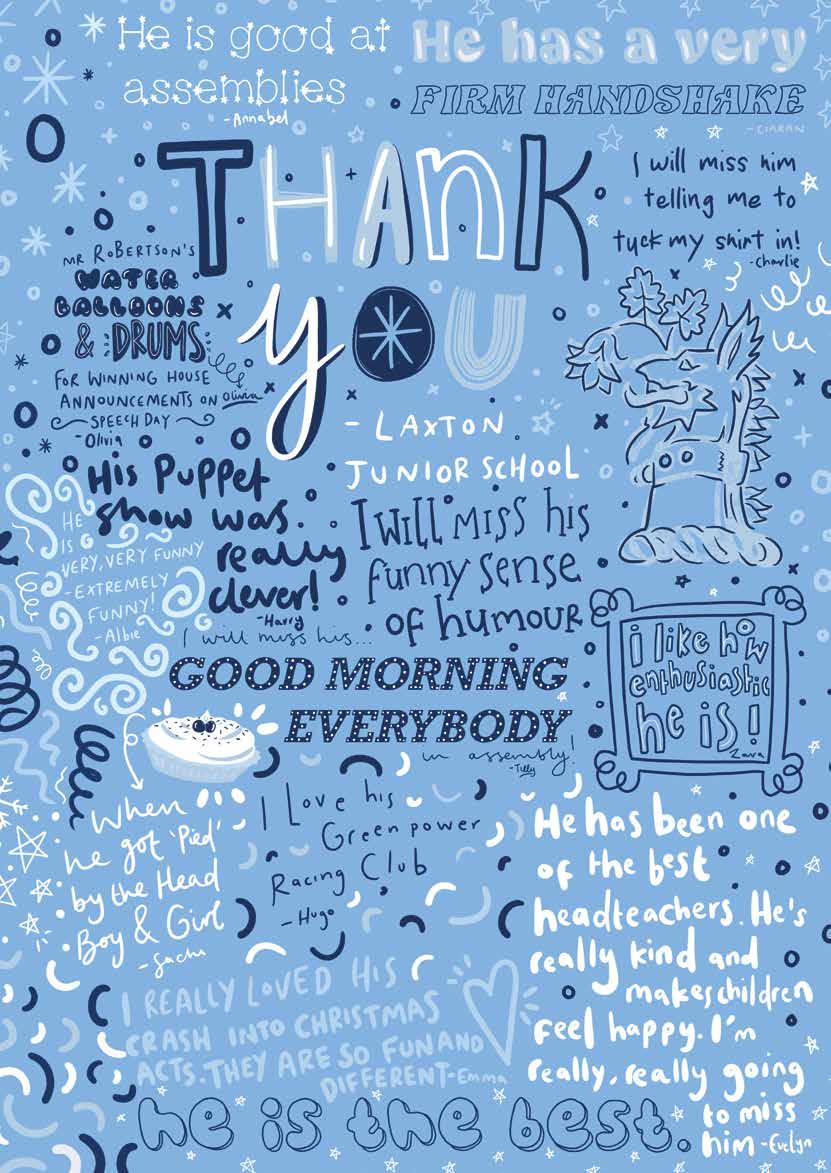 He is good at
assemblies
-Annabel
He has a very
FIRM HANDSHAKE
-CIARAN
THANK
you
- LAXTON
JUNIOR SCHOOL
I will miss him
telling me to
tuck my shirt in!
-Charlie
MR ROBERTSON'S
WATER
BALLOONS
& DRUMS
FOR WINNING HOUSE
ANNOUNCEMENTS ON
SPEECH DAY
-Olivia
olivia
His Puppet
show was
really
clever!
-Harry
HE
IS
VERY, VERY FUNNY
-EXTREMELY
FUNNY!
-Albie
I WILL MISS his
funny sense
of humour
I will miss his...
GOOD MORNING
EVERYBODY
in assembly!
-Tilly
i like how
enthusiastic
he is!
Zara
When
he got 'Pied'
by the Head
Boy & Girl
-Sacha
I Love his
Green power
Racing Club
-Hugo
He has been one
of the best
headteachers. He's
really kind and
makes children
feel happy. I'm
really, really going
to miss
him -Evelyn
I REALLY LOVED HIS
CRASH INTO CHRISTMAS
ACTS. THEY ARE SO FUN AND
DIFFERENT-Emma
he is the best.